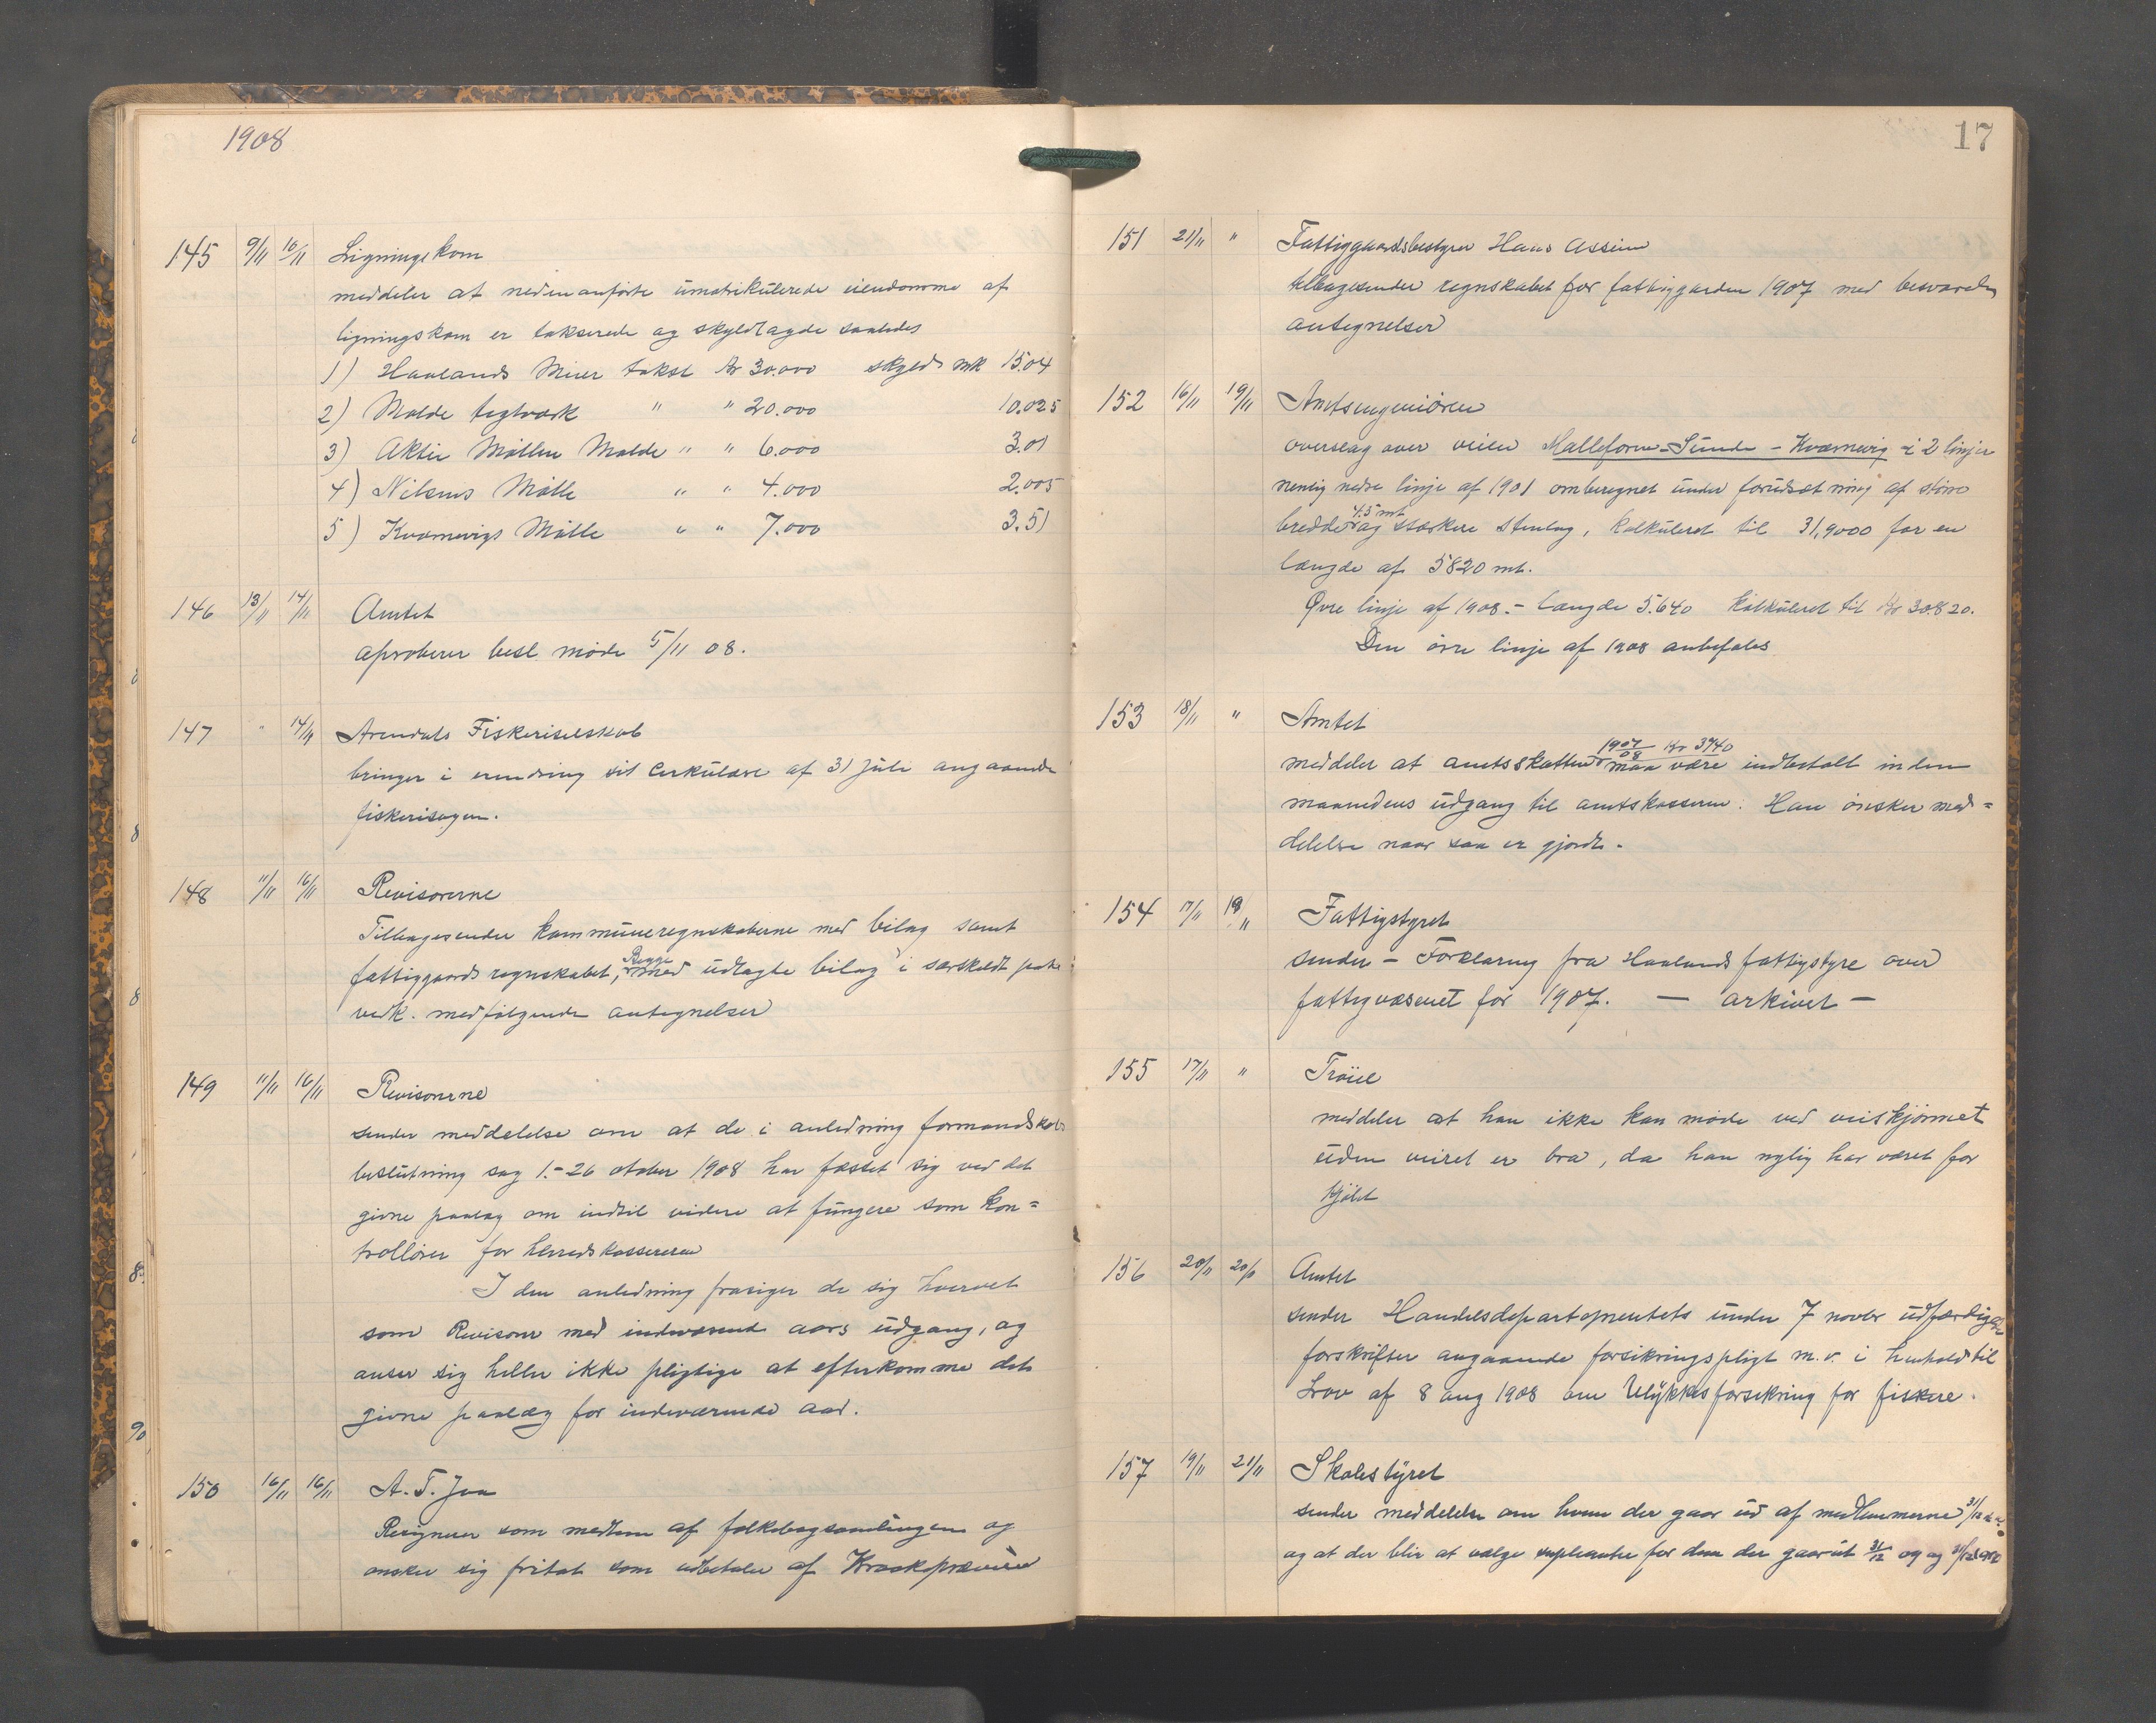 1908
145 9/11 10/11 Ligningskom
meddeler at nedenanførte umatrikulerede eiendomme af
ligningskom er takserede og skyldlagde saaledes
1) Haalands Meier takst Kr 30.000 skyld mk 15.04
2) Malde teglværk " " 20.000 10.025
3) Aktie Møllen Malde " " 6.000 3.01
4) Nilsens Mølle " " 4.000 2.005
5) Kvernevigs Mølle " " 7.000 3.51
146 13/11 14/11 Amtet
aproberer besl. møde 5/11 08.
147 " 14/11 Arendals Fiskeriselskab
bringer i erindring sit Cerkulære af 31 juli angaaende
fiskerisagen.
148 11/11 16/11 Revisorerne
Tilbagesender kommuneregnskaberne med bilag samt
fattiggaards regnskabet, Begge med udlagte bilag i særskildt
vedk. medfølgende antegnelser
149 11/11 16/11 Revisorerne
sender meddelelse om at de i anledning formandskabs
beslutning sag 1.- 26 otober 1908 har fæstet sig ved det
givne paalæg om indtil videre at fungere som kon=
trollører for herredskassereren
I den anledning frasiger de sig hvervet
som Revisorer med indeværende aars udgang, og
anser sig heller ikke pligtige at efterkomme det
givne paalæg for indeværende aar.
150 16/11 16/11 A. T. Jaa
Resignerer som medlem af folkebogsamlingen og
ønsker sig fritat som udbetaler af Kraakepræmier
17
151 21/11 " Fattiggaardsbestyrer Hans Assim
tilbagesender regnskabet for fattiggarden 1907 med besvarede
antegnelser
152 16/11 19/11 Amtsingeniøren
overslag over veien Malleforen - Sunde - Kvernevig i 2 linjer
nemlig nedre linje af 1901 omberegnet under forudsætning af større
4.5 mt
bredde og stærkere stenlag, kalkuleret til 31,9000 for en
længde af 5820 mt.
Øvre linje af 1908. - længde 5.640 kalkuleret til Kr 30.820.
Den øvre linje af 1908 anbefales
153 18/11 " Amtet
1907/08 Kr 3740
meddeler at amtsskatten maa være indbetalt inden
maanedens udgang til amtskasseren. Han ønsker med=
delelse naar saa er gjordt.
154 17/11 19/11 Fattigstyret
sender - Forklaring fra Haalands fattigstyre over
fattigvæsenet for 1907. — arkivet —
155 17/11 " Trøiel
meddeler at han ikke kan møde ved veiskjønnet
uden veiret er bra, da han nylig har været for
kjølet
156 20/11 20/11 Amtet
sender Handelsdepartementets under 7 novbr udfærdigede
forskrifter angaaende forsikringspligt m.v. i henhold til
Lov af 8 aug 1908 om Ulykkesforsikring for fiskere.
157 19/11 21/11 Skolestyret
sender meddelelse om hvem der gaar ud af medlemmerne 31/12
og at der blir at vælge supleanter for dem der gaar ut 31/12 og